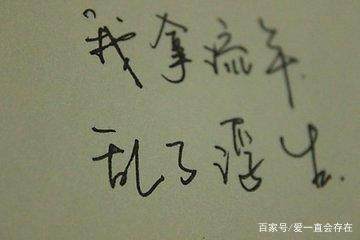 “我拿流年
乱了浮生.
百家号/爱一直会存在